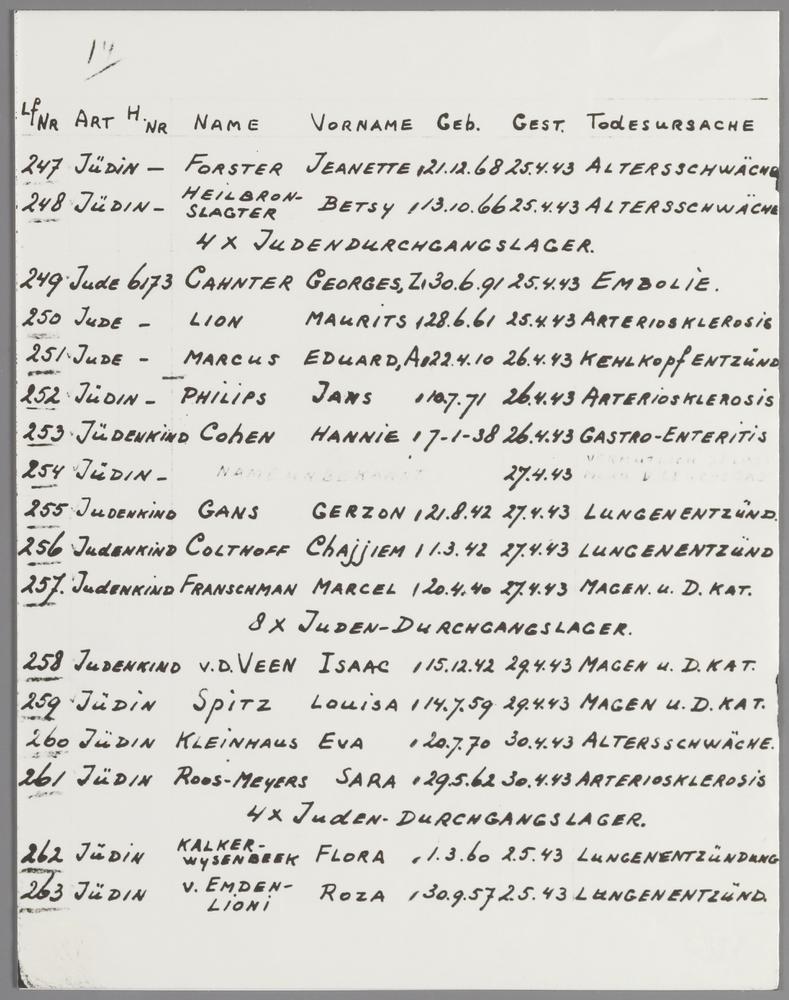 14
Lf.Nr ART H.NR NAME VORNAME Geb. GEST. TODESURSACHE
247 JÜDIN — FORSTER JEANETTE, 21.12.68 25.4.43 ALTERSSCHWÄCHE
248 JÜDIN - HEILBRON-SLAGTER BETSY, 13.10.66 25.4.43 ALTERSSCHWÄCHE
4 X JUDENDURCHGANGSLAGER.
249 Jude 6173 CAHNTER GEORGES, Z, 30.6.91 25.4.43 EMBOLIE.
250 JUDE - LION MAURITS, 28.6.61 25.4.43 ARTERIOSKLEROSIS
251 JUDE - MARCUS EDUARD, A, 22.4.10 26.4.43 KEHLKOPFENTZÜND
252 JÜDIN - PHILIPS JANS, 10.7.71 26.4.43 ARTERIOSKLEROSIS
253 JÜDENKIND COHEN HANNIE, 7-1-38 26.4.43 GASTRO-ENTERITIS
254 JÜDIN - NAME UNBEKANNT 27.4.43
255 JUDENKIND GANS GERZON, 21.8.42 27.4.43 LUNGENENTZÜND.
256 JUDENKIND COLTHOFF CHAJJIEM, 1.3.42 27.4.43 LUNGENENTZÜND
257. JUDENKIND FRANSCHMAN MARCEL, 20.4.40 27.4.43 MAGEN. u. D. KAT.
8 X JUDEN-DURCHGANGSLAGER.
258 JUDENKIND V.D. VEEN ISAAC, 15.12.42 29.4.43 MAGEN u. D. KAT.
259 JÜDIN SPITZ LOUISA, 14.7.59 29.4.43 MAGEN U. D. KAT.
260 JÜDIN KLEINHAUS EVA, 20.7.70 30.4.43 ALTERSSCHWÄCHE.
261 JÜDIN ROOS-MEYERS SARA, 29.5.62 30.4.43 ARTERIOSKLEROSIS
4 X JUDEN-DURCHGANGSLAGER.
262 JÜDIN KALKER-WYSENBEEK FLORA, 1.3.60 2.5.43 LUNGENENTZÜNDUNG
263 JÜDIN V. EMDEN-LIONI ROZA, 30.9.57 2.5.43 LUNGENENTZÜND.